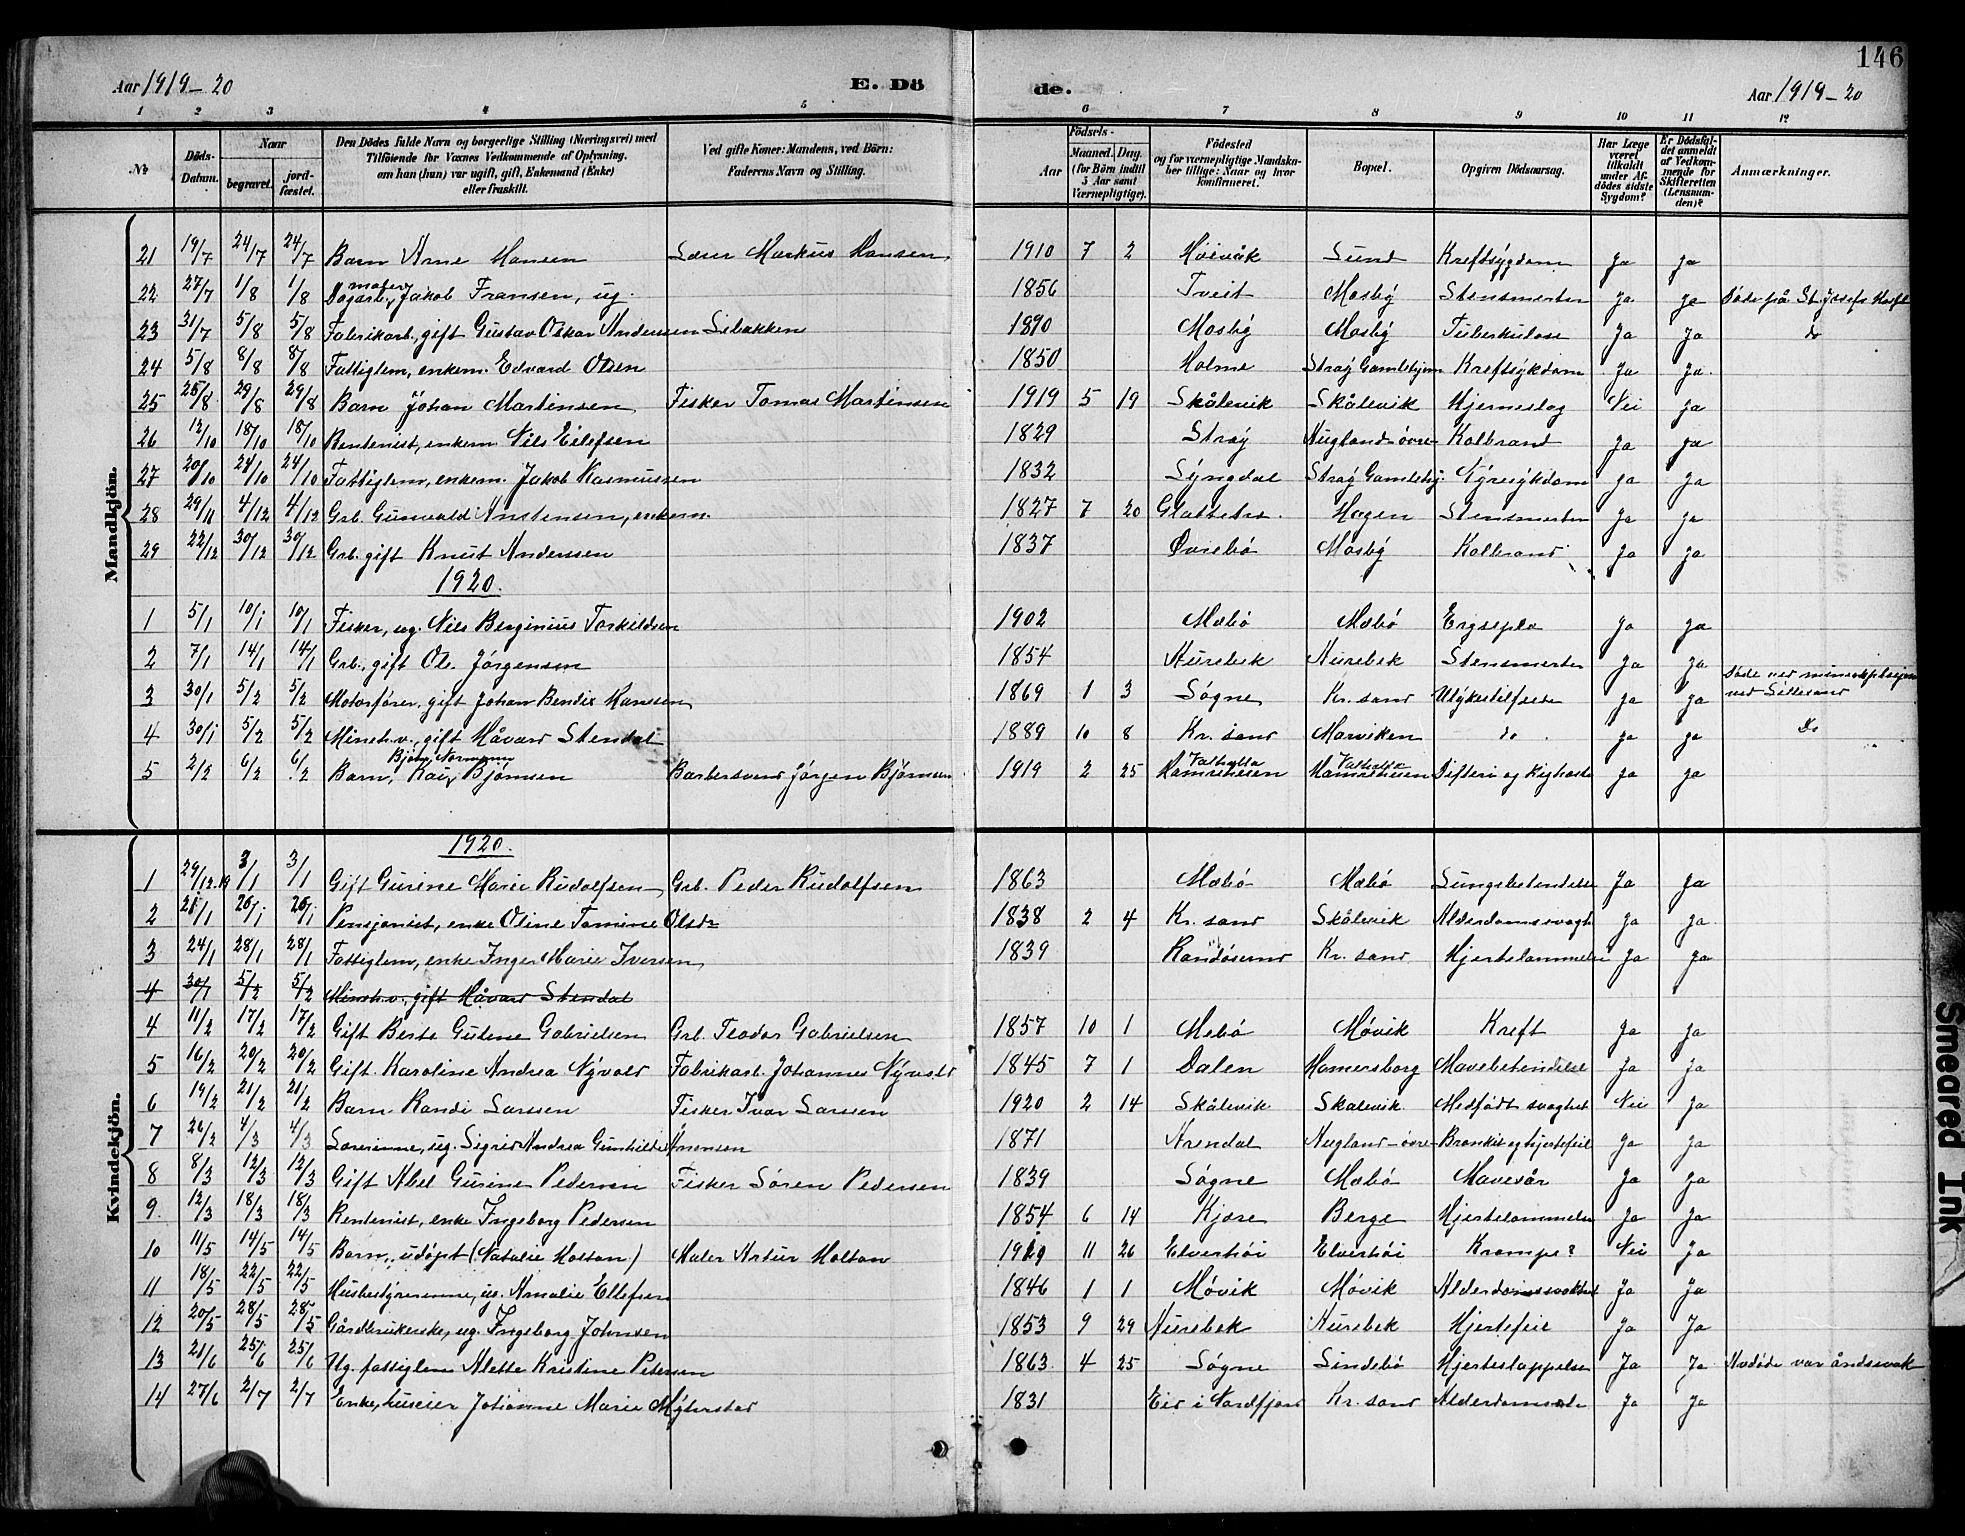 146
Aar 1919-20 E. Dö de. Aar 1919-20
1 2 3 4 5 6 7 8 9 10 11 12
No. Döds-Datum. Naar begravet. jord-fæstet. Den Dödes fulde Navn og borgerlige Stilling (Næringsvei) med Tilföiende for Voxnes Vedkommende af Oplysning, om han (hun) var ugift, gift, Enkemand (Enke) eller fraskilt. Ved gifte Koner: Mandens, ved Börn: Faderens Navn og Stilling. Födsels- Aar Maaned. Dag. (for Börn indtil 5 Aar samt Værnepligtige). Födested og for værnepligtige Mandskaber tillige: Naar og hvor konfirmeret. Bopæl. Opgiven Dödsaarsag. Har Læge været tilkaldt under Afdödes sidste Sygdom? Er Dödsfaldet anmeldt af Vedkommende for Skifteretten (Lensmanden)? Anmærkninger.
Mandkjön.
21 19/7 24/7 24/7 Barn Arne Hansen Lærer Markus Hansen 1910 7 2 Höivåk Lund Kreftsygdom Ja Ja
22 27/7 1/8 1/8 Dagarb. Jakob Fransen, ug. 1856 Tveit Mosby Ja Ja Döde på St. Josefs Hospl
23 31/7 5/8 5/8 Fabrikarb., gift Gustav Oskar Anderssen Libakken 1890 Mosby Mosby Tuberkulose Ja Ja do
24 5/8 8/8 8/8 Fattiglem, enkem. Edvard Olsen 1850 Holme Stray Gamlehjem Kreftsykdom Ja Ja
25 25/8 29/8 29/8 Barn Johan Martinsen Fisker Tomas Martinsen 1919 5 19 Skålevik Skålevik Hjerneslag Nei Ja
26 12/10 18/10 18/10 Rentenist, enkem Nils Eilefsen 1829 Stray Augland-övre Kolbrand Ja Ja
27 20/10 24/10 24/10 Fattiglem, enkem. Jakob Rasmussen 1832 Lyngdal Stray Gamlehj. Nyresykdom Ja Ja
28 29/11 4/12 4/12 Grb. Gunvald Anstensen, enkem. 1827 7 20 Hagen Ja Ja
29 22/12 30/12 30/12 Grb. gift Knut Anderssen 1837 Øvrebö Mosby Kolbrand Ja Ja
1920.
1 5/1 10/1 10/1 Fisker, ug. Nils Berginius Torkildsen 1902 Mæbö Mæbö Ja Ja
2 7/1 14/1 14/1 Grb., gift Ole Jörgensen 1854 Aurebek Aurebek Ja Ja
3 30/1 5/2 5/2 Motorförer, gift Johan Bendix Hanssen 1869 1 3 Søgne Kr. sand Ulykestilfelle Ja Ja Döde ved mineeksplosjon ved Lillesand
4 30/1 5/2 5/2 Mineh.v., gift Håvard Stendal 1889 10 8 Kr. sand Marviken do Ja Ja Do
5 2/2 6/2 6/2 Barn, Kai Björn Normann Björnsen Barbersvend Jörgen Björnsen 1919 2 25 Valhalla Hamrehesen Valhalla Hamrehesen Difteri og Kighoste Ja Ja
Kvindekjön.
1920.
1 29/12.19 3/1 3/1 Gift Gurine Marie Rudolfsen Grb. Peder Rudolfsen 1863 Mæbö Mæbö Lungebetendelse Ja Ja
2 21/1 26/1 26/1 Pensjonist, enke Oline Tomine Olsdr 1838 2 4 Kr. sand Skålevik Alderdomssvagh Ja Ja
3 24/1 28/1 28/1 Fattiglem, enke Inger Marie Iversen 1839 Randösund Kr. sand Hjertelammelse Ja Ja
4 30/1 5/2 5/2 Mineh.v., gift Håvard Stendal
4 11/2 17/2 17/2 Gift Berte Gurine Gabrielsen Grb. Teodor Gabrielsen 1857 10 1 Mebö Møvik Kreft Ja Ja
5 16/2 20/2 20/2 Gift Karoline Andrea Nyvold Fabrikarb. Johannes Nyvold 1845 7 1 Dalen Hamersborg Mavebetendelse Ja Ja
6 19/2 21/2 21/2 Barn Randi Larssen Fisker Ivar Larssen 1920 2 14 Skålevik Skålevik Medfödt svaghet Nei Ja
7 26/2 4/3 4/3 Lærerinne, ug. Sigrid Andrea Gunhilde Ånonsen 1871 Arendal Augland-övre Bronkit og hjertefeil Ja Ja
8 8/3 12/3 12/3 Gift Abel Gurine Pedersen Fisker Sören Pedersen 1839 Søgne Mæbö Mavesår Ja Ja
9 12/3 18/3 18/3 Rentenist, enke Ingeborg Pedersen 1854 6 14 Kjære Berge Hjertelammelse Ja Ja
10 11/5 14/5 14/5 Barn, udöpt (Natalie Holtan) Maler Artur Holtan 1919 11 26 Elverhöi Elverhöi Krampe? Nei Ja
11 18/5 22/5 22/5 Husbestyrerinne, ug. Amalie Ellefsen 1846 1 1 Møvik Møvik Alderdomssvakhet Ja Ja
12 20/5 28/5 28/5 Gårdbrukerske, ug. Ingeborg Johnsen 1853 9 29 Aurebek Aurebek Hjertefeil Ja Ja
13 21/6 25/6 25/6 Ug. fattiglem Alette Kristine Petersen 1863 4 25 Søgne Lindebö Hjerteslappelse Ja Ja Avdöde var åndssvak
14 27/6 2/7 2/7 Enke, huseier Johanne Marie Myhrstad 1831 Eid i Nordfjord Kr. sand Ja Ja
Smeared Ink